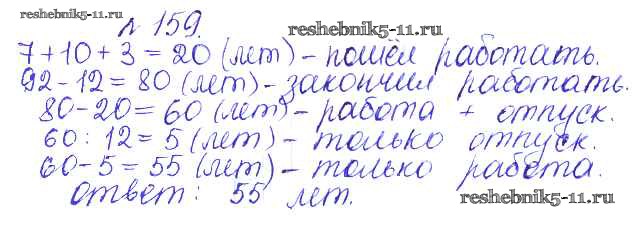 № 159. reshebnik5-11.ru
7+10+3=20 (лет) – пошёл работать.
92-12=80 (лет) – закончил работать.
80-20=60 (лет) – работа + отпуск.
60:12=5 (лет) – только отпуск.
60-5=55 (лет) – только работа.
ответ: 55 лет. reshebnik5-11.ru